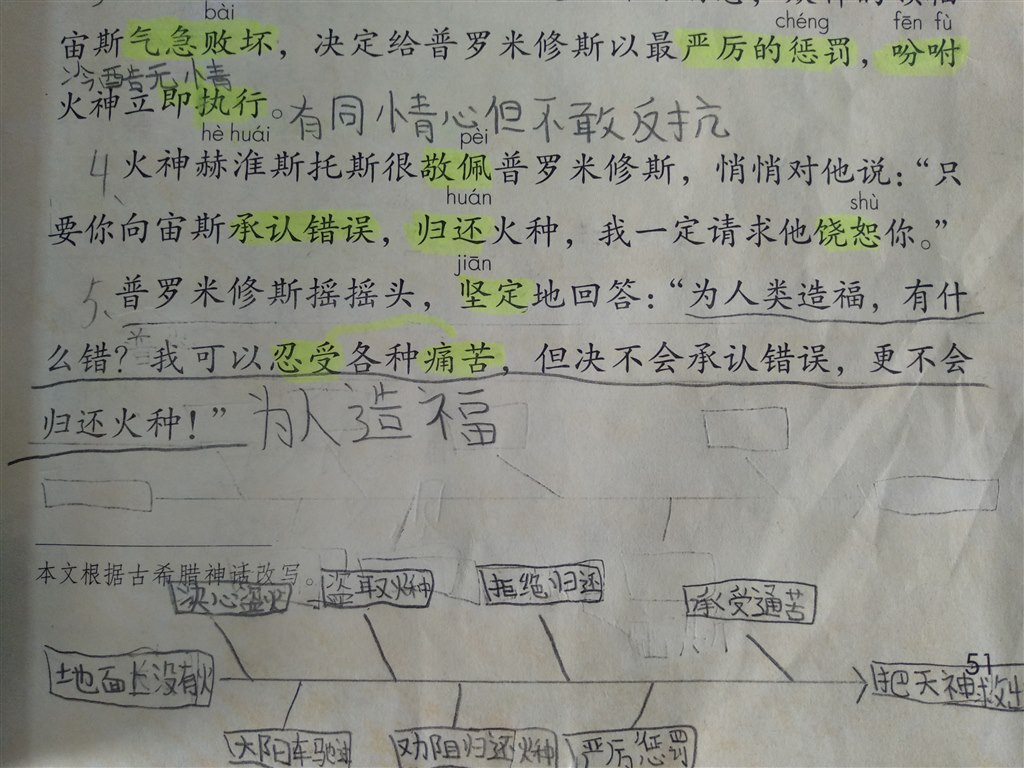 bài chéng fēn fù
宙斯气急败坏，决定给普罗米修斯以最严厉的惩罚，吩咐
冷酷无情
火神立即执行。有同情心但不敢反抗
hè huái pèi
4、火神赫淮斯托斯很敬佩普罗米修斯，悄悄对他说：“只
huán shù
要你向宙斯承认错误，归还火种，我一定请求他饶恕你。”
jiān
5、普罗米修斯摇摇头，坚定地回答：“为人类造福，有什
么错？我可以忍受各种痛苦，但决不会承认错误，更不会
归还火种！”为人造福
本文根据古希腊神话改写。
决心盗火 盗取火种 拒绝归还 承受通苦
51
地面上没有火 把天神救出
太阳车驰过 劝阻归还火种 严厉惩罚